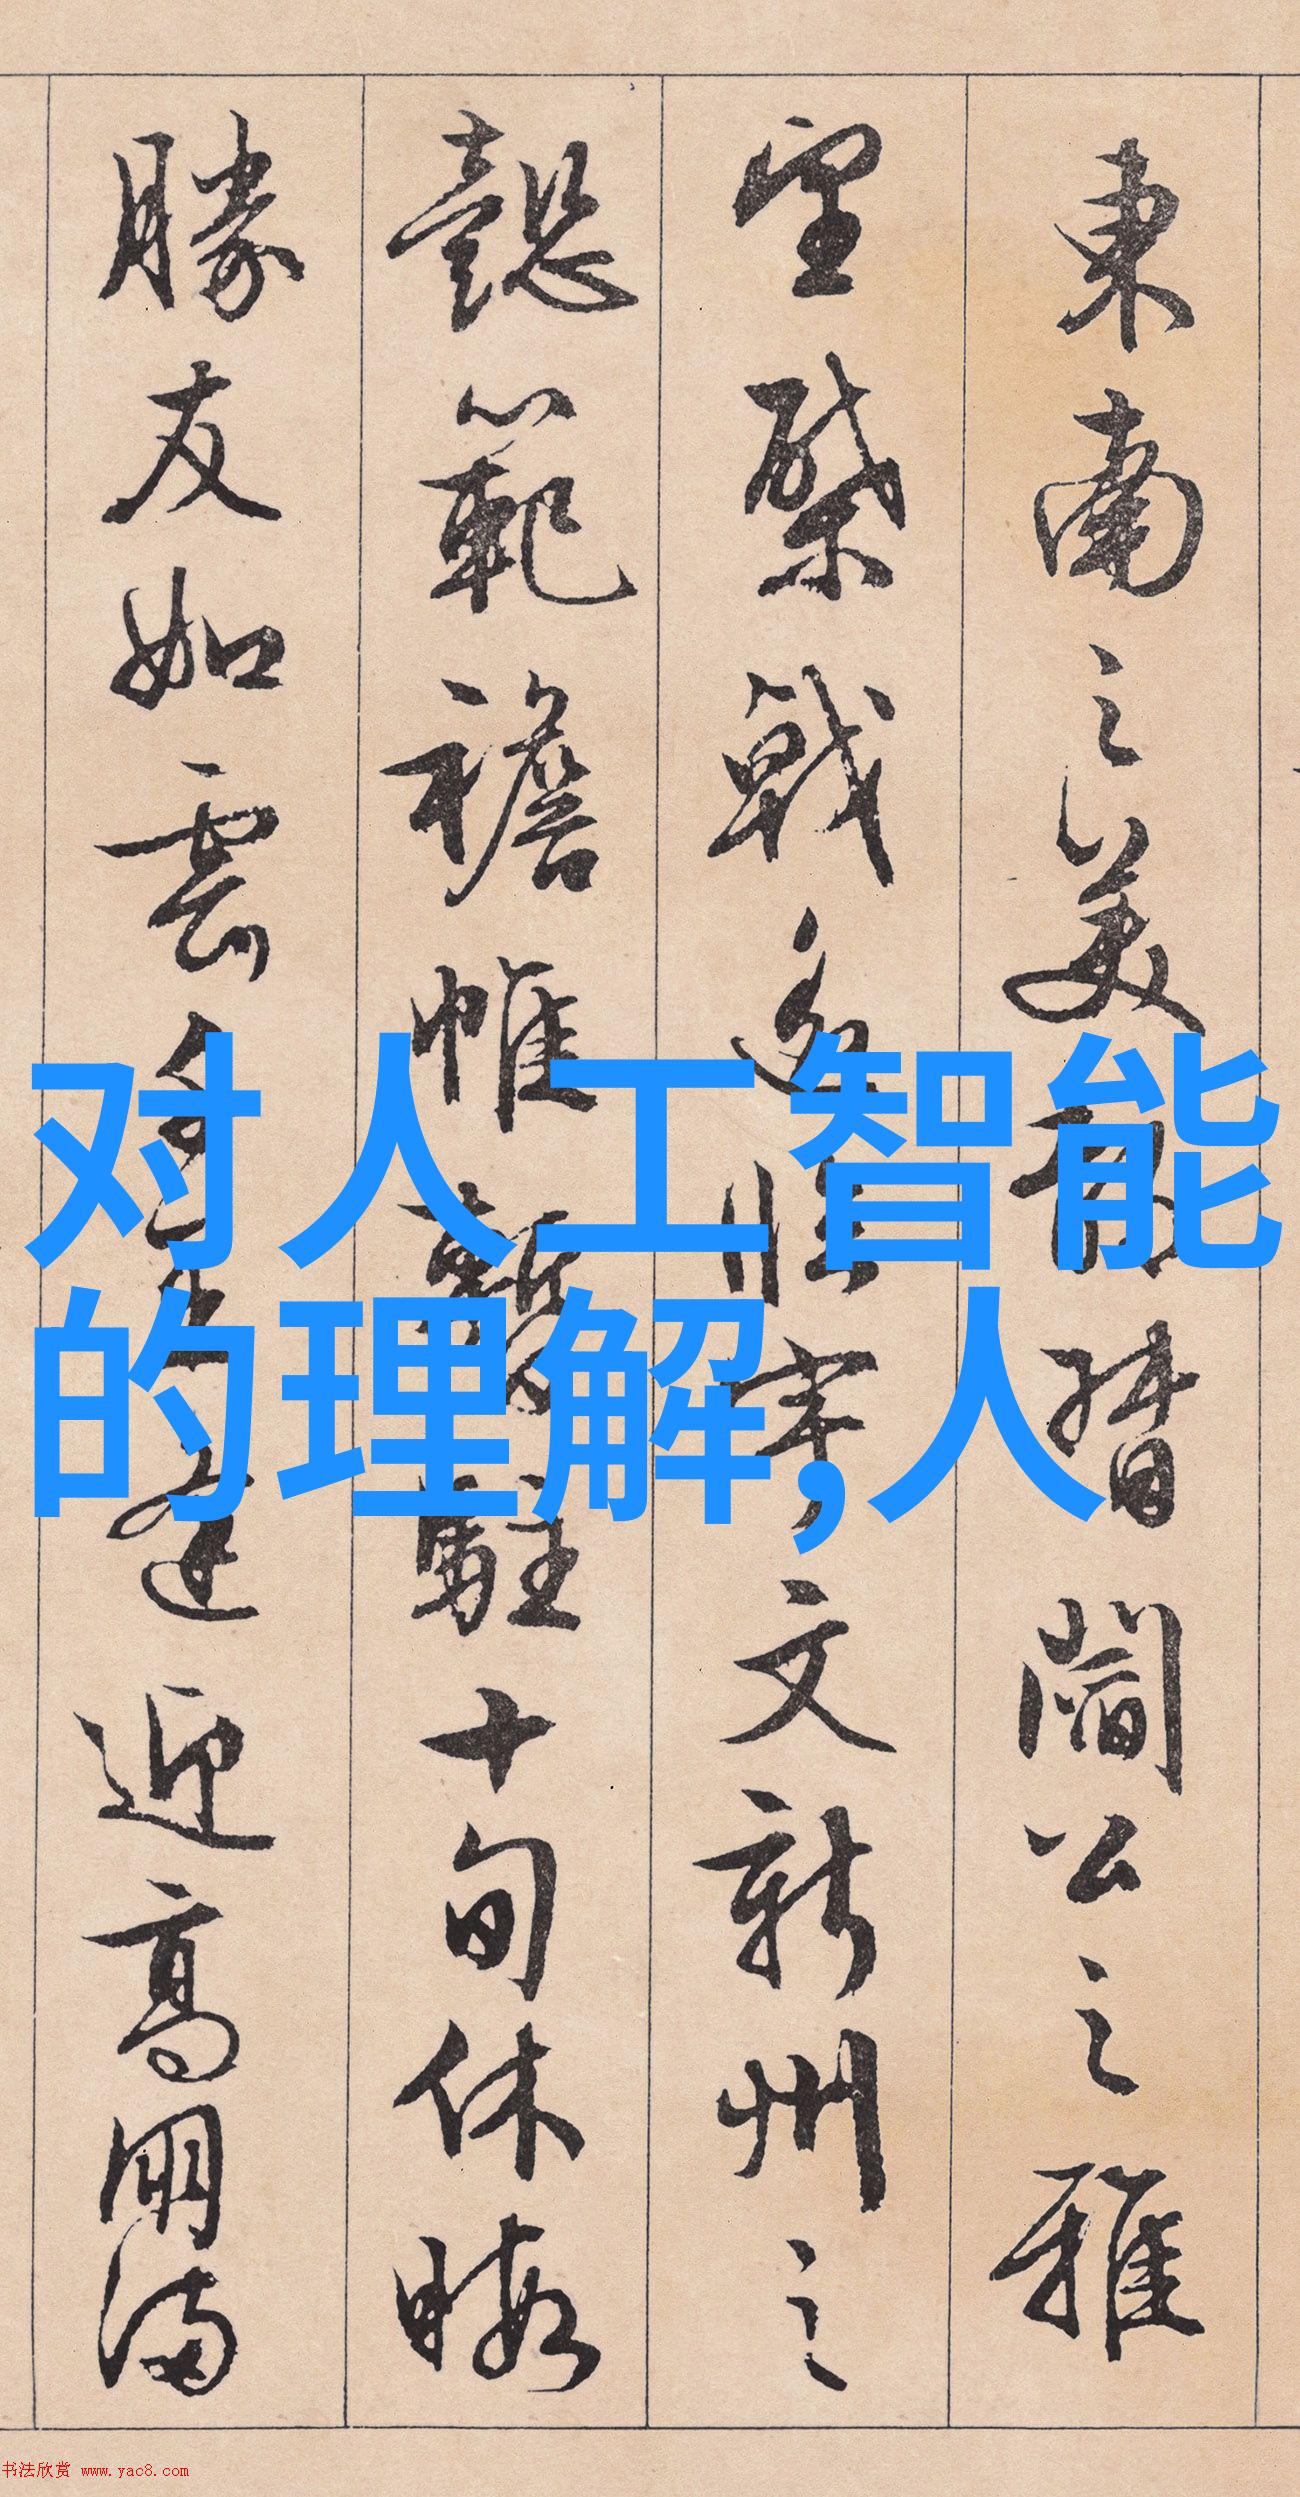 東南之美都督閻公之雅
望棨戟遥臨宇文新州之
懿範襜帷暫駐十旬休暇
勝友如雲千里逢迎高朋滿
对人工智能
的理解,人
书法欣赏 www.yac8.com